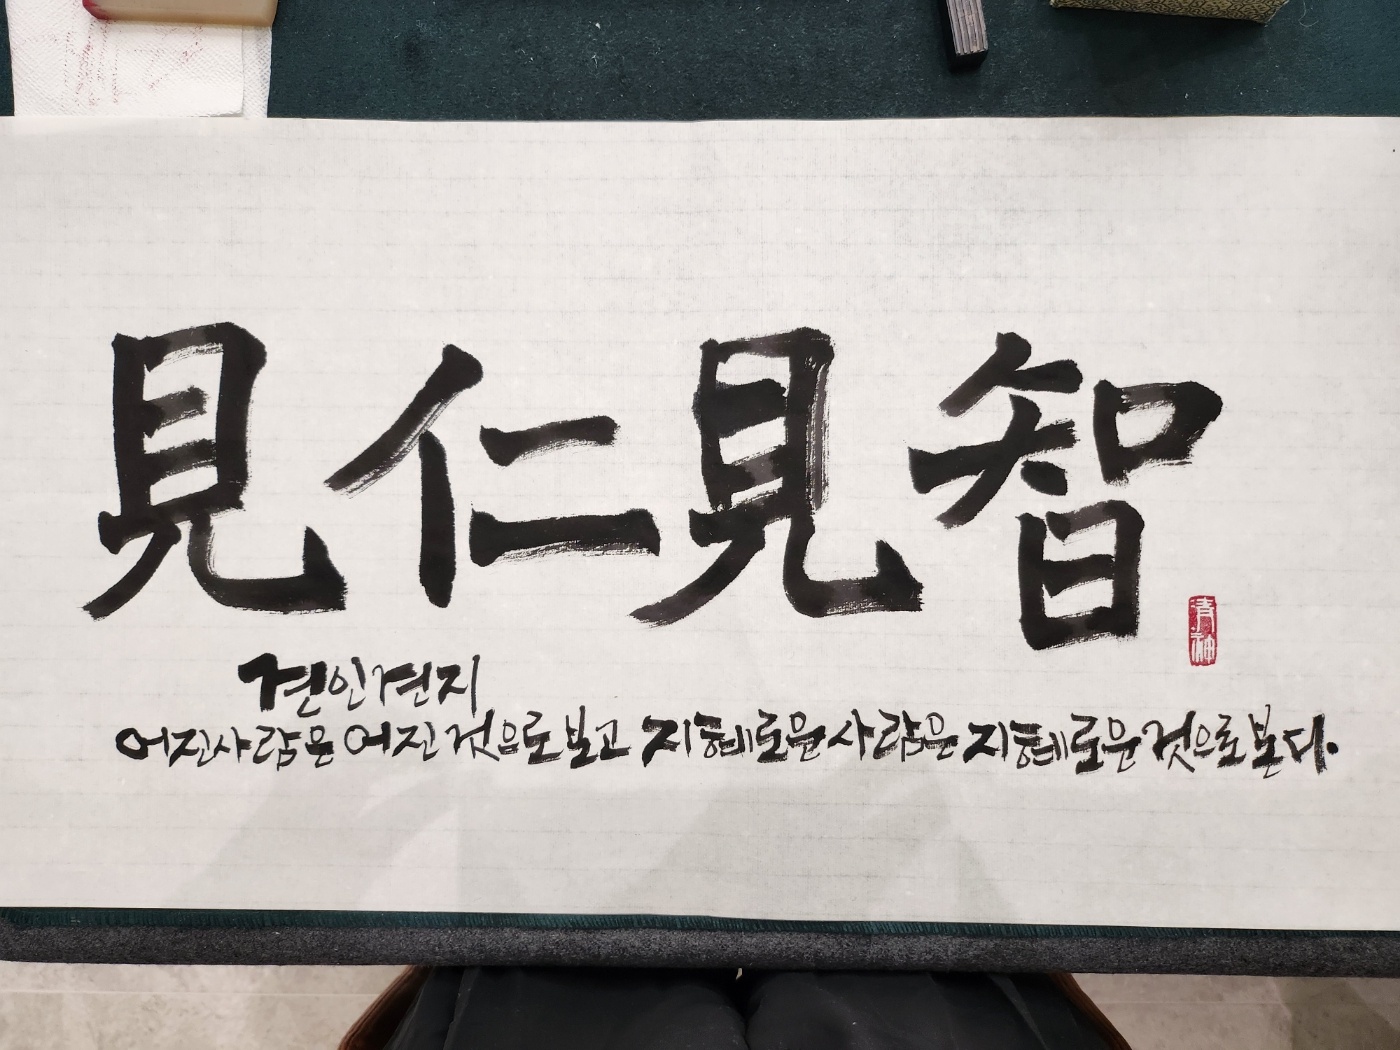 見仁見智
견인견지
어진사람은 어진것으로보고 지혜로운사람은 지혜로운것으로본다.